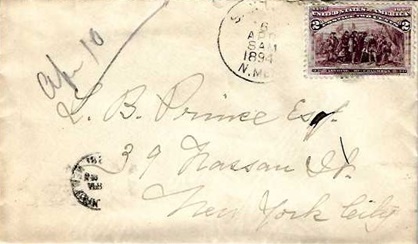 Apr 10
6
APR
5 AM
1894
N. MEX
UNITED STATES OF AMERICA
2 2
L. B. Prince Esq.
39 Nassau St.
New York City